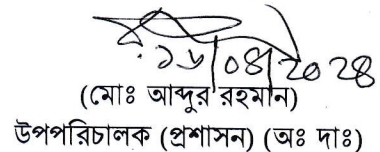 ১৮/০৪/২০২৪
(মোঃ আব্দুর রহমান)
উপপরিচালক (প্রশাসন) (অঃ দাঃ)